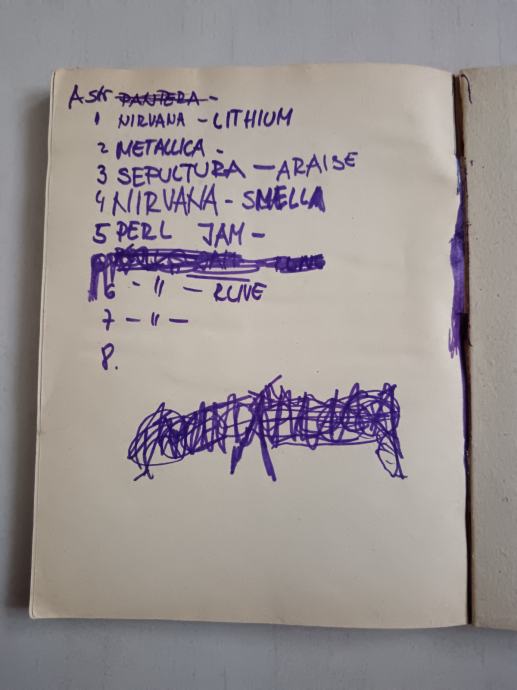 ASK PANTERA -
1 NIRVANA - LITHIUM
2 METALLICA -
3 SEPULTURA - ARAISE
4 NIRVANA - SMELLA
5 PERL JAM -
6 - " - RLIVE
7 - " -
8.